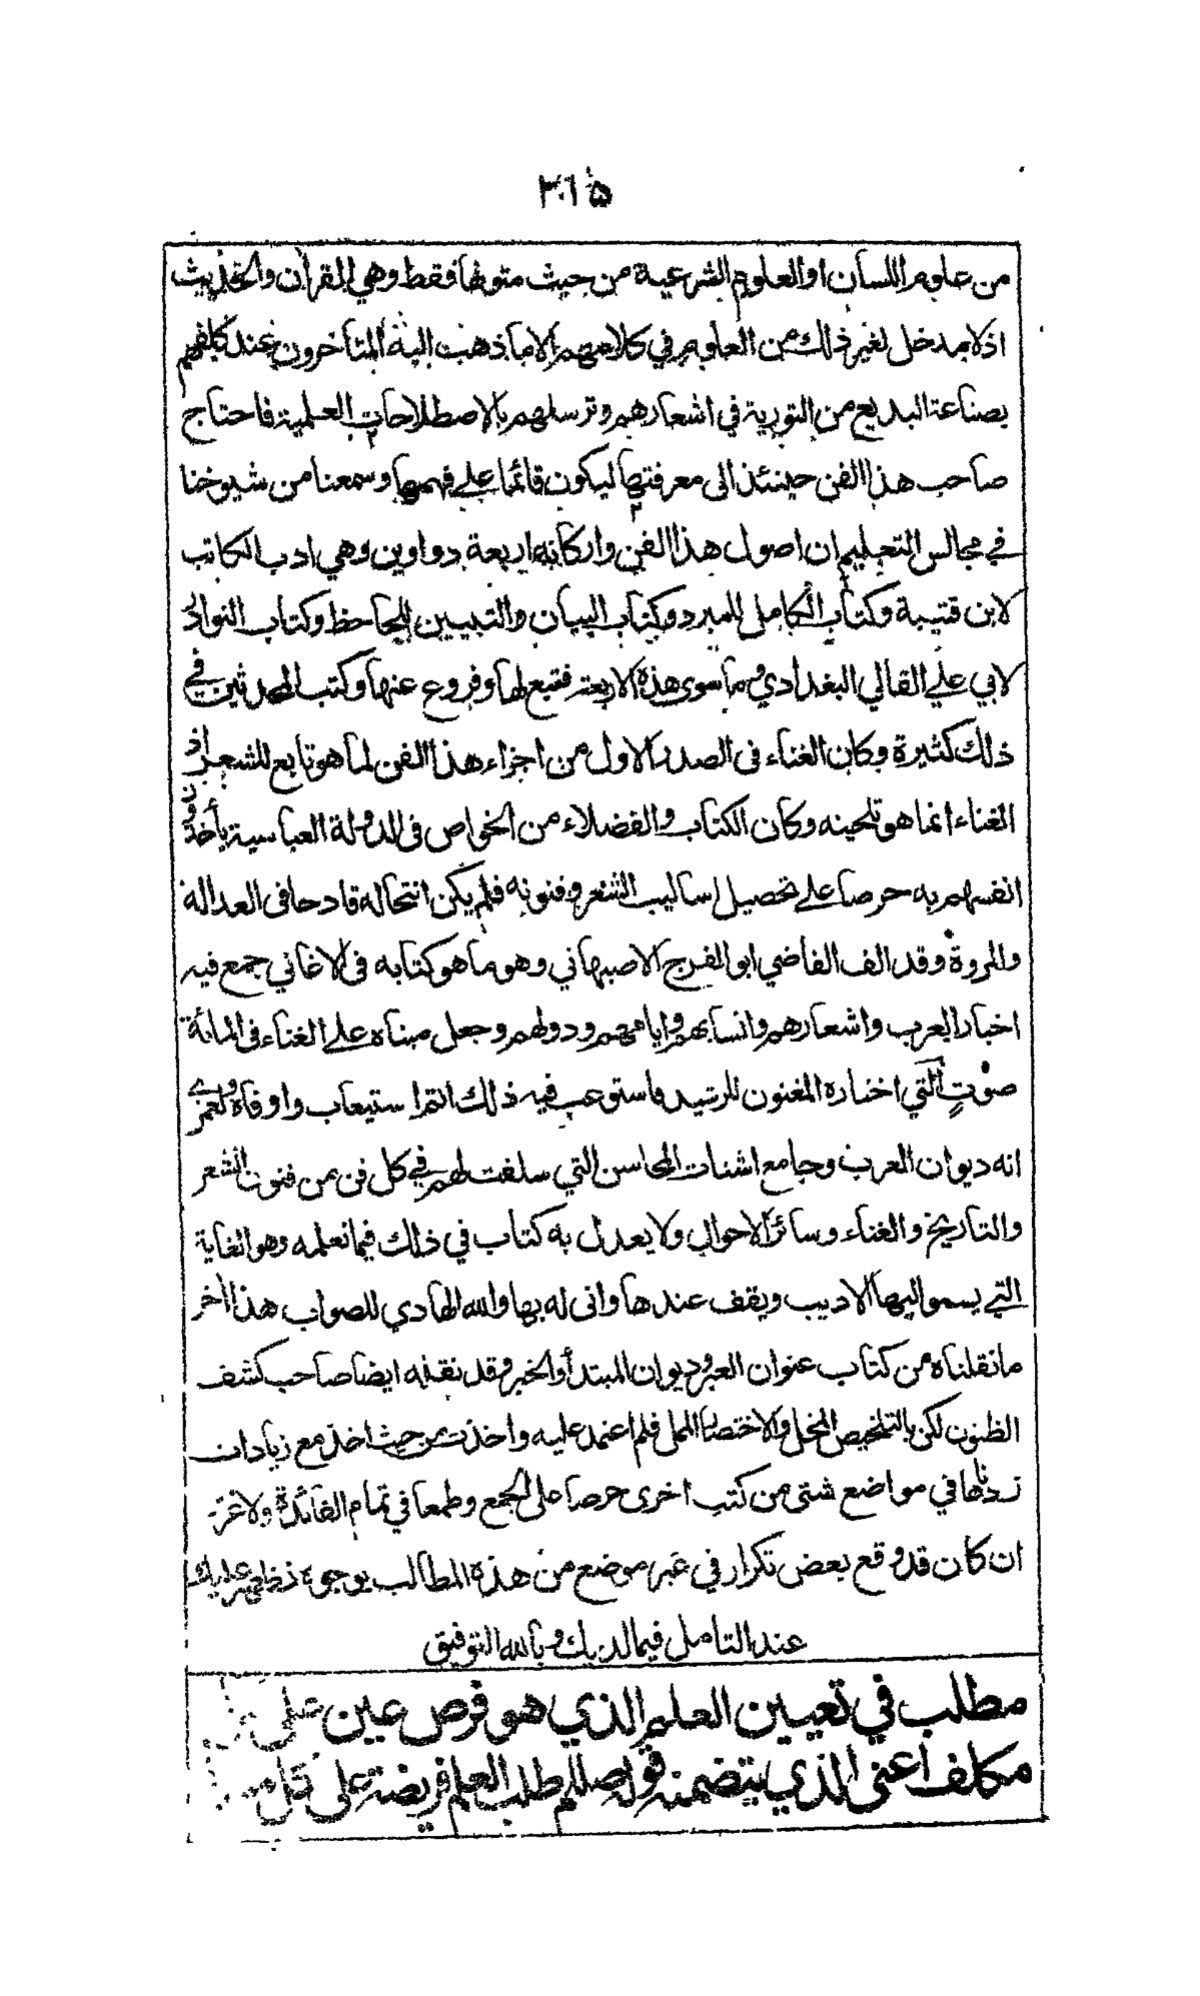 ٣١٥
من علوم اللسان او العلوم الشرعية من حيث متونها فقط وهي القرآن والحديث
اذ لا مدخل لغير ذلك من العلوم في كلامهم الا ما ذهب اليه المتأخرون عند كلفهم
بصناعة البديع من التورية في اشعارهم وترسلهم بالاصطلاحات العلمية فاحتاج
صاحب هذا الفن حينئذ الى معرفتها ليكون قائما على فهمها وسمعنا من شيوخنا
في مجالس التعليم ان اصول هذا الفن واركانه اربعة دواوين وهي ادب الكاتب
لابن قتيبة وكتاب الكامل للمبرد وكتاب البيان والتبيين للجاحظ وكتاب النوادر
لابي علي القالي البغدادي وما سوى هذه الاربعة فتبع لها وفروع عنها وكتب المحدثين في
ذلك كثيرة وكان الغناء فى الصدر الاول من اجزاء هذا الفن لما هو تابع للشعر اذ
الغناء انما هو تلحينه وكان الكتاب والفضلاء من الخواص فى الدولة العباسية يأخذون
انفسهم به حرصا على تحصيل اساليب الشعر وفنونه فلم يكن انتحاله قادحا فى العدالة
والمروة وقد الف القاضي ابو الفرج الاصبهاني وهو ما هو كتابه فى الاغاني جمع فيه
اخبار العرب واشعارهم وانسابهم وايامهم ودولهم وجعل مبناه على الغناء فى المائة
صوت التي اختاره المغنون للرشيد فاستوعب فيه ذلك اتم استيعاب واوفاه ولعمري
انه ديوان العرب وجامع اشتات المحاسن التي سلفت لهم في كل فن من فنون الشعر
والتاريخ والغناء وسائر الاحوال ولا يعدل به كتاب في ذلك فيما نعلمه وهو الغاية
التي يسمو اليها الاديب ويقف عندها وانى له بها والله الهادي للصواب هذا آخر
ما نقلناه من كتاب عنوان العبر وديوان المبتدأ والخبر وقد نقله ايضا صاحب كشف
الظنون لكن بالتلخيص المخل والاختصار الممل فلم اعتمد عليه واخذت من حيث اخذ مع زيادات
زدناها في مواضع شتى من كتب اخرى حرصا على الجمع وطمعا في تمام الفائدة ولا غرو
ان كان قد وقع بعض تكرار في غير موضع من هذه المطالب بوجوه تظهر عليك
عند التامل فيما لديك وبالله التوفيق
مطلب في تعيين العلم الذي هو فرض عين على
مكلف اعنى الذي يتضمنه قوله صللم طلب العلم فريضة على كل